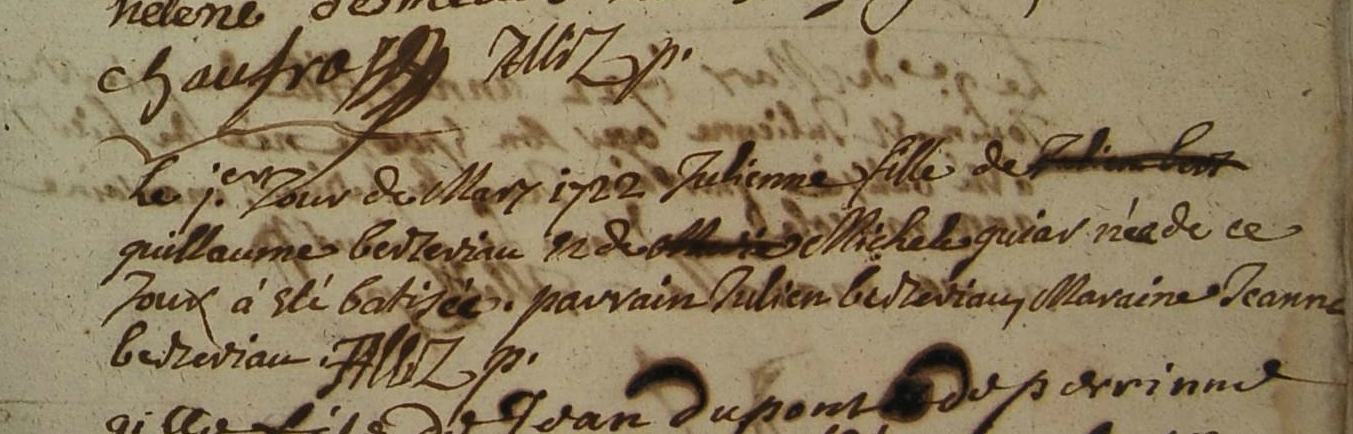 helene
chaufro Alliz p.
Le j.er Jour de Mars 1722 Julienne fille de
guillaume bertreviau & de Michele quiar née de ce
Jour á eté batisée. parrain Julien bertreviau, Maraine Jeanne
bertreviau. Alliz p.
gille fils de Jean dupont & de perrinne